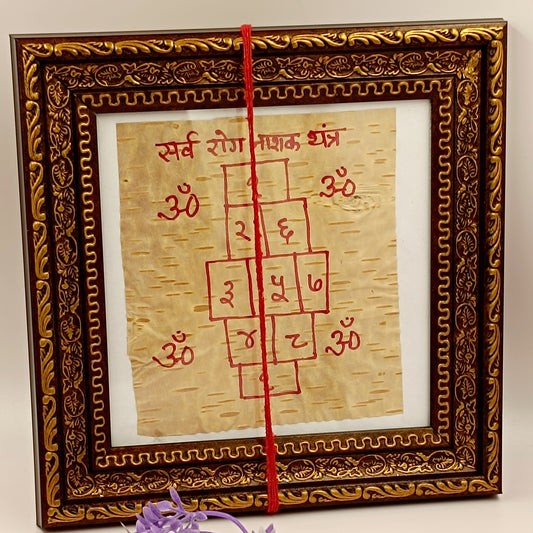 सर्व रोग नाशक यंत्र
ॐ ॐ
२ ६
३ ५ ७
ॐ ४ ८ ॐ